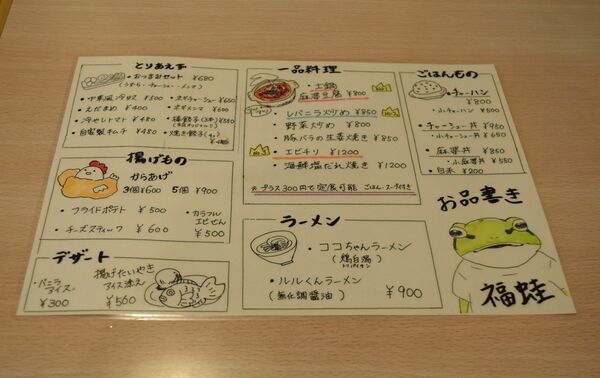 とりあえず
・おつまみセット ¥680
・中華風冷ヤス ¥500
・えだまめ ¥400
・ネギメンマ ¥600
・冷やしトマト ¥480
・自家製キムチ ¥480
揚げもの
からあげ
3個 ¥600 5個 ¥900
・フライドポテト ¥500
・チーズスティック ¥600
・カラフルエビせん
¥500
デザート
・バニラアイス
¥300
揚げたいやき
アイス添え
¥560
一品料理
・土鍋
麻婆豆腐 ¥800
・レバニラ炒め ¥850
・野菜炒め ¥800
・豚バラの生姜焼き ¥850
・エビチリ ¥1200
・海鮮塩だれ焼き ¥1200
※プラス300円で定食可能 ごはん・スープ付き
ラーメン
・ココちゃんラーメン
(鶏白湯)
・ルルくんラーメン
(無化調醤油)
¥900
ごはんもの
・チャーハン
¥800
・小チャーハン ¥500
・チャーシュー丼 ¥950
・麻婆丼 ¥850
・小麻婆丼 ¥550
・白米 ¥200
お品書き
福蛙